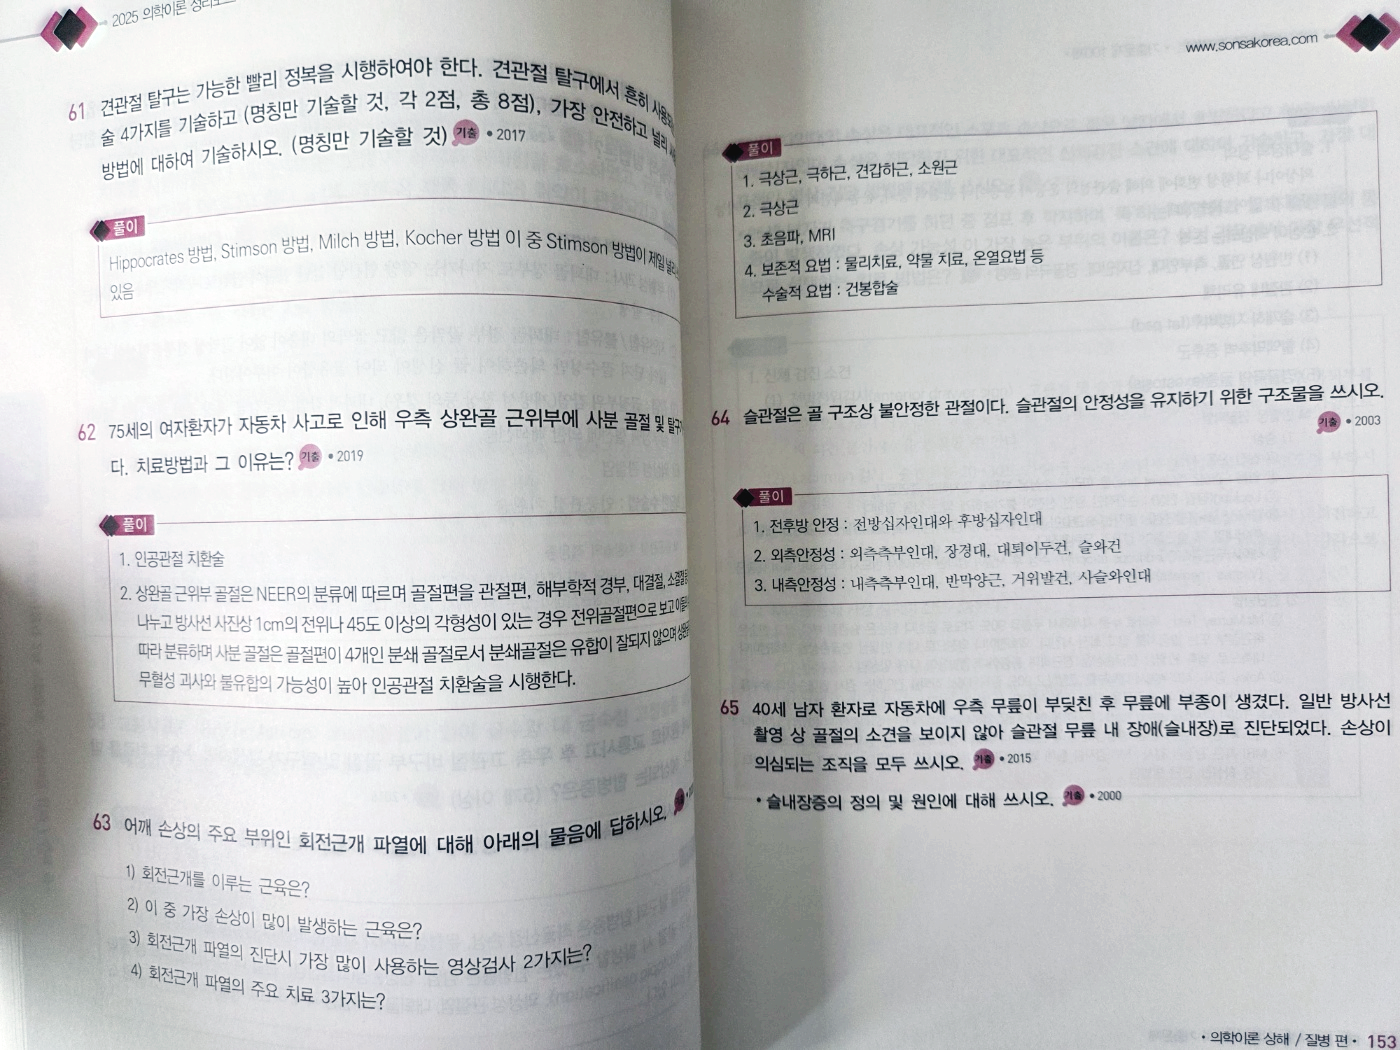 2025 의학이론
61 견관절 탈구는 가능한 빨리 정복을 시행하여야 한다. 견관절 탈구에서 흔히
술 4가지를 기술하고 (명칭만 기술할 것, 각 2점, 총 8점), 가장 안전하고 널리
방법에 대하여 기술하시오. (명칭만 기술할 것) 기출 • 2017
풀이
Hippocrates 방법, Stimson 방법, Milch 방법, Kocher 방법 이 중 Stimson 방법이 제일
있음
62 75세의 여자환자가 자동차 사고로 인해 우측 상완골 근위부에 사분 골절 및
다. 치료방법과 그 이유는? 기출 • 2019
풀이
1. 인공관절 치환술
2. 상완골 근위부 골절은 NEER의 분류에 따르며 골절편을 관절편, 해부학적 경부, 대결절,
나누고 방사선 사진상 1cm의 전위나 45도 이상의 각형성이 있는 경우 전위골절편으로 보고
따라 분류하며 사분 골절은 골절편이 4개인 분쇄 골절로서 분쇄골절은 유합이 잘되지 않으며
무혈성 괴사와 불유합의 가능성이 높아 인공관절 치환술을 시행한다.
63 어깨 손상의 주요 부위인 회전근개 파열에 대해 아래의 물음에 답하시오. 기출
1) 회전근개를 이루는 근육은?
2) 이 중 가장 손상이 많이 발생하는 근육은?
3) 회전근개 파열의 진단시 가장 많이 사용하는 영상검사 2가지는?
4) 회전근개 파열의 주요 치료 3가지는?
www.sonsakorea.com
풀이
1. 극상근, 극하근, 견갑하근, 소원근
2. 극상근
3. 초음파, MRI
4. 보존적 요법 : 물리치료, 약물 치료, 온열요법 등
수술적 요법 : 건봉합술
64 슬관절은 골 구조상 불안정한 관절이다. 슬관절의 안정성을 유지하기 위한 구조물을 쓰시오.
기출 • 2003
풀이
1. 전후방 안정 : 전방십자인대와 후방십자인대
2. 외측안정성 : 외측측부인대, 장경대, 대퇴이두건, 슬와건
3. 내측안정성 : 내측측부인대, 반막양근, 거위발건, 사슬와인대
65 40세 남자 환자로 자동차에 우측 무릎이 부딪친 후 무릎에 부종이 생겼다. 일반 방사선
촬영 상 골절의 소견을 보이지 않아 슬관절 무릎 내 장애(슬내장)로 진단되었다. 손상이
의심되는 조직을 모두 쓰시오. 기출 • 2015
• 슬내장증의 정의 및 원인에 대해 쓰시오. 기출 • 2000
• 의학이론 상해 / 질병 편 • 153